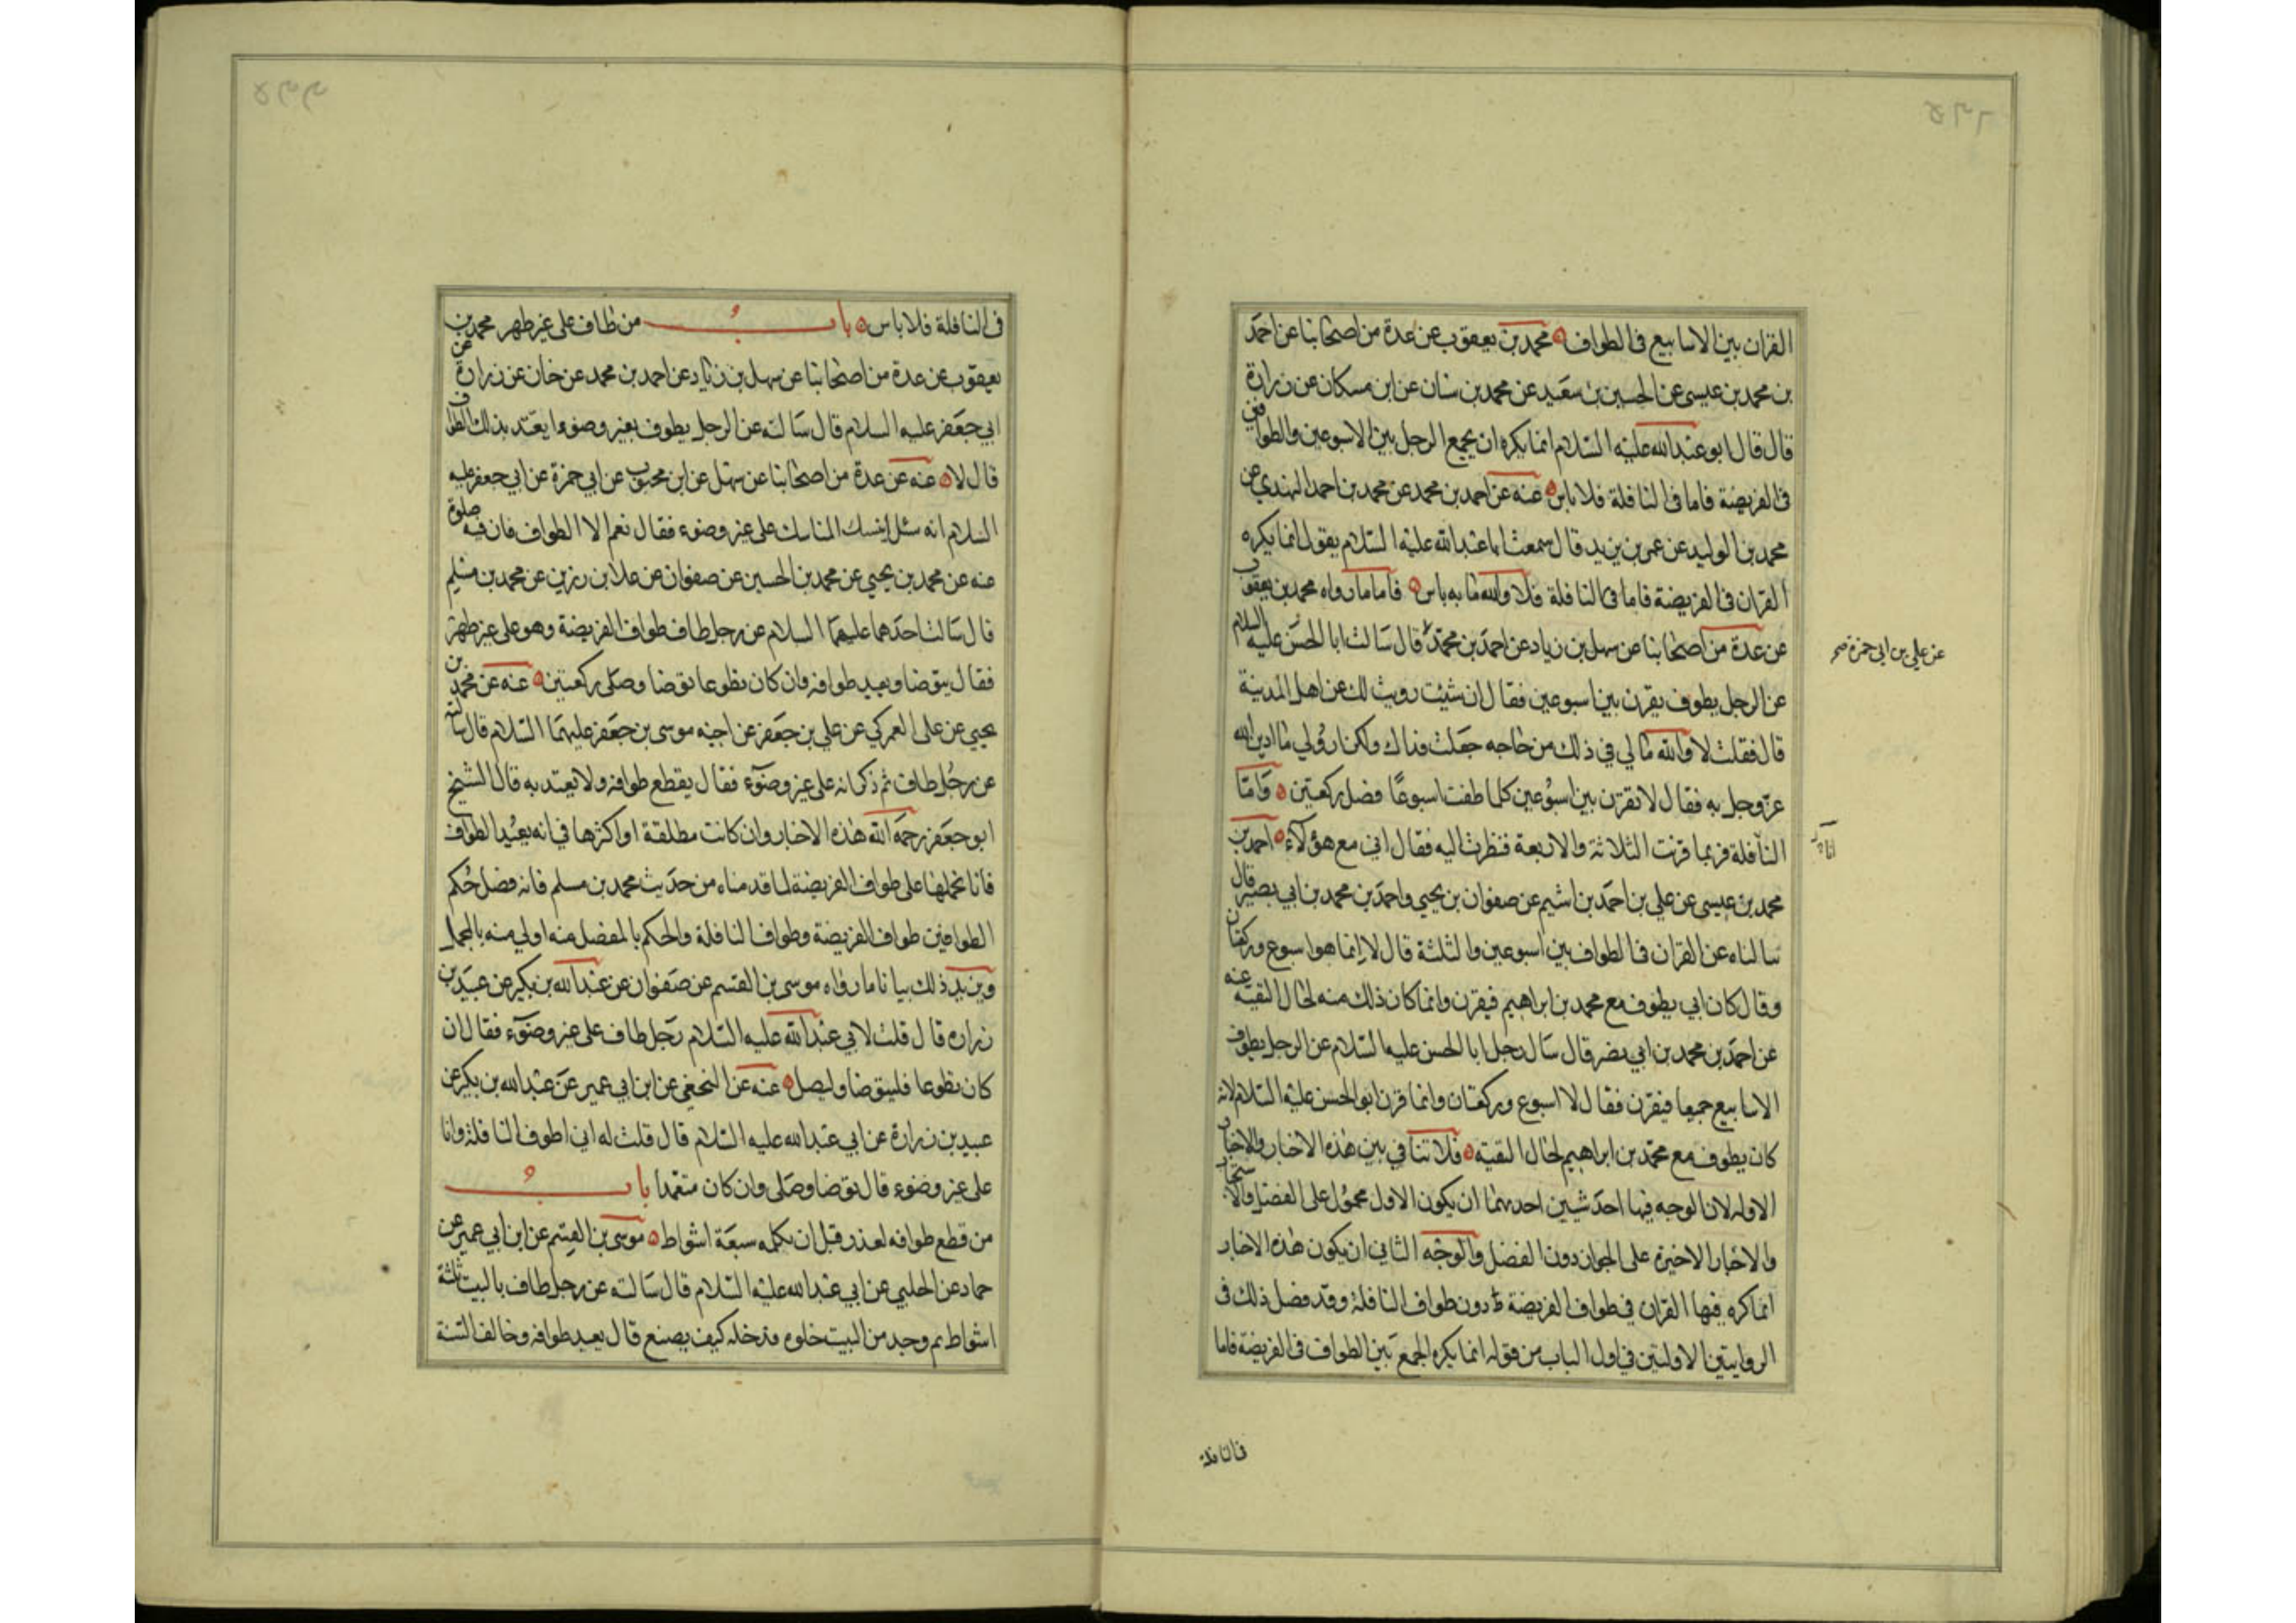 القران بين الاسابيع في الطواف محمد بن يعقوب عن عدة من اصحابنا عن احمد
بن محمد بن عيسى عن الحسين بن سعيد عن محمد بن سنان عن ابن مسكان عن زرارة
قال قال ابو عبد الله عليه السلام انما يكره ان يجمع الرجل بين الاسبوعين والطوافين
في الفريضة فاما في النافلة فلا باس عنه عن احمد بن محمد عن محمد بن احمد النهدي عن
محمد بن الوليد عن عمر بن يزيد قال سمعت ابا عبد الله عليه السلام يقول انما يكره
القران في الفريضة فاما في النافلة فلا والله ما به باس فاما ما رواه محمد بن يعقوب
عن عدة من اصحابنا عن سهل بن زياد عن احمد بن محمد قال سالت ابا الحسن عليه السلام
عن علي بن ابي حمزة صح
عن الرجل يطوف يقرن بين اسبوعين فقال ان شئت رويت لك عن اهل المدينة
قال فقلت لا والله ما لي في ذلك من حاجه جعلت فداك ولكن ارو لي ما ادين الله
عز وجل به فقال لا تقرن بين اسبوعين كلما طفت اسبوعا فصل ركعتين واما
النافلة فربما قرنت الثلاثة والاربعة فنظرت اليه فقال اني مع هؤلاء احمد بن
محمد بن عيسى عن علي بن احمد بن اشيم عن صفوان بن يحيى واحمد بن محمد بن ابي بصير قال
سالناه عن القران في الطواف بين اسبوعين والثلثة قال لا انما هو اسبوع وركعتان
وقال كان ابي يطوف مع محمد بن ابراهيم فيقرن وانما كان ذلك منه لحال التقية عنه
عن احمد بن محمد بن ابي نصر قال سال رجل ابا الحسن عليه السلام عن الرجل يطوف
الاسابيع جميعا فيقرن فقال لا اسبوع وركعتان وانما قرن ابو الحسن عليه السلام لانه
كان يطوف مع محمد بن ابراهيم لحال التقية فلا تنافي بين هذه الاخبار والاخبار
الاوله لان الوجه فيها احد شيين احدهما ان يكون الاول محمول على الفضل والاستحباب
والاخبار الاخيرة على الجواز دون الفضل والوجه الثاني ان يكون هذه الاخبار
انما كره فيها القران في طواف الفريضة دون طواف النافلة وقد فصل ذلك في
الروايتين الاوليتين في اول الباب من قوله انما يكره الجمع بين الطواف في الفريضة فاما
في النافلة
في النافلة فلا باس باب من طاف على غير طهر محمد بن
يعقوب عن عدة من اصحابنا عن سهل بن زياد عن احمد بن محمد عن حنان عن زرارة عن
ابي جعفر عليه السلام قال سالته عن الرجل يطوف بغير وضوء ايعتد بذلك الطواف
قال لا عنه عن عدة من اصحابنا عن سهل عن ابن محبوب عن ابي حمزة عن ابي جعفر عليه
السلام انه سئل اينسك المناسك على غير وضوء فقال نعم الا الطواف فان فيه صلوة
عنه عن محمد بن يحيى عن محمد بن الحسين عن صفوان عن علا بن رزين عن محمد بن مسلم
قال سالت احدهما عليهما السلام عن رجل طاف طواف الفريضة وهو على غير طهر
فقال يتوضا ويعيد طوافه وان كان تطوعا توضا وصلى ركعتين عنه عن محمد بن
يحيى عن على العمركي عن علي بن جعفر عن اخيه موسى بن جعفر عليهما السلام قال سالته
عن رجل طاف ثم ذكر انه على غير وضوء فقال يقطع طوافه ولا يعتد به قال الشيخ
ابو جعفر رحمه الله هذه الاخبار وان كانت مطلقة او اكثرها في انه يعيد الطواف
فانا نحملها على طواف الفريضة لما قدمناه من حديث محمد بن مسلم فانه فصل حكم
الطوافين طواف الفريضة وطواف النافلة والحكم بالمفصل منه اولى منه بالمجمل
ويزيد ذلك بيانا ما رواه موسى بن القسم عن صفوان عن عبد الله بن بكير عن عبيد بن
زراره قال قلت لابي عبد الله عليه السلام رجل طاف على غير وضوء فقال ان
كان تطوعا فليتوضا وليصل عنه عن النخعي عن ابن ابي عمير عن عبد الله بن بكير عن
عبيد بن زرارة عن ابي عبد الله عليه السلام قال قلت له اني اطوف النافلة وانا
على غير وضوء قال توضا وصلى وان كان متعمدا باب
من قطع طوافه لعذر قبل ان يكمله سبعة اشواط موسى بن القسم عن ابن ابي عمير عن
حماد عن الحلبي عن ابي عبد الله عليه السلام قال سالته عن رجل طاف بالبيت ثلثة
اشواط ثم وجد من البيت خلوه فدخله كيف يصنع قال يعيد طوافه وخالف السنة